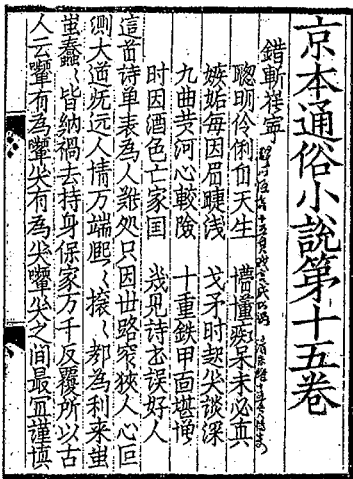 京本通俗小說第十五卷
錯斬崔寧
聰明伶俐自天生 懵懂痴呆未必真
嫉妬每因眉睫浅 戈矛时起笑談深
九曲黄河心較險 十重鉄甲面堪憎
时因酒色亡家国 幾見诗书误好人
這首诗单表為人难処只因世路窄狹人心叵
測大道既远人情万端熙〻攘〻都為利来蚩
蚩蠢〻皆納禍去持身保家万千反覆所以古
人云顰有為顰笑有為笑顰笑之间最宜謹慎